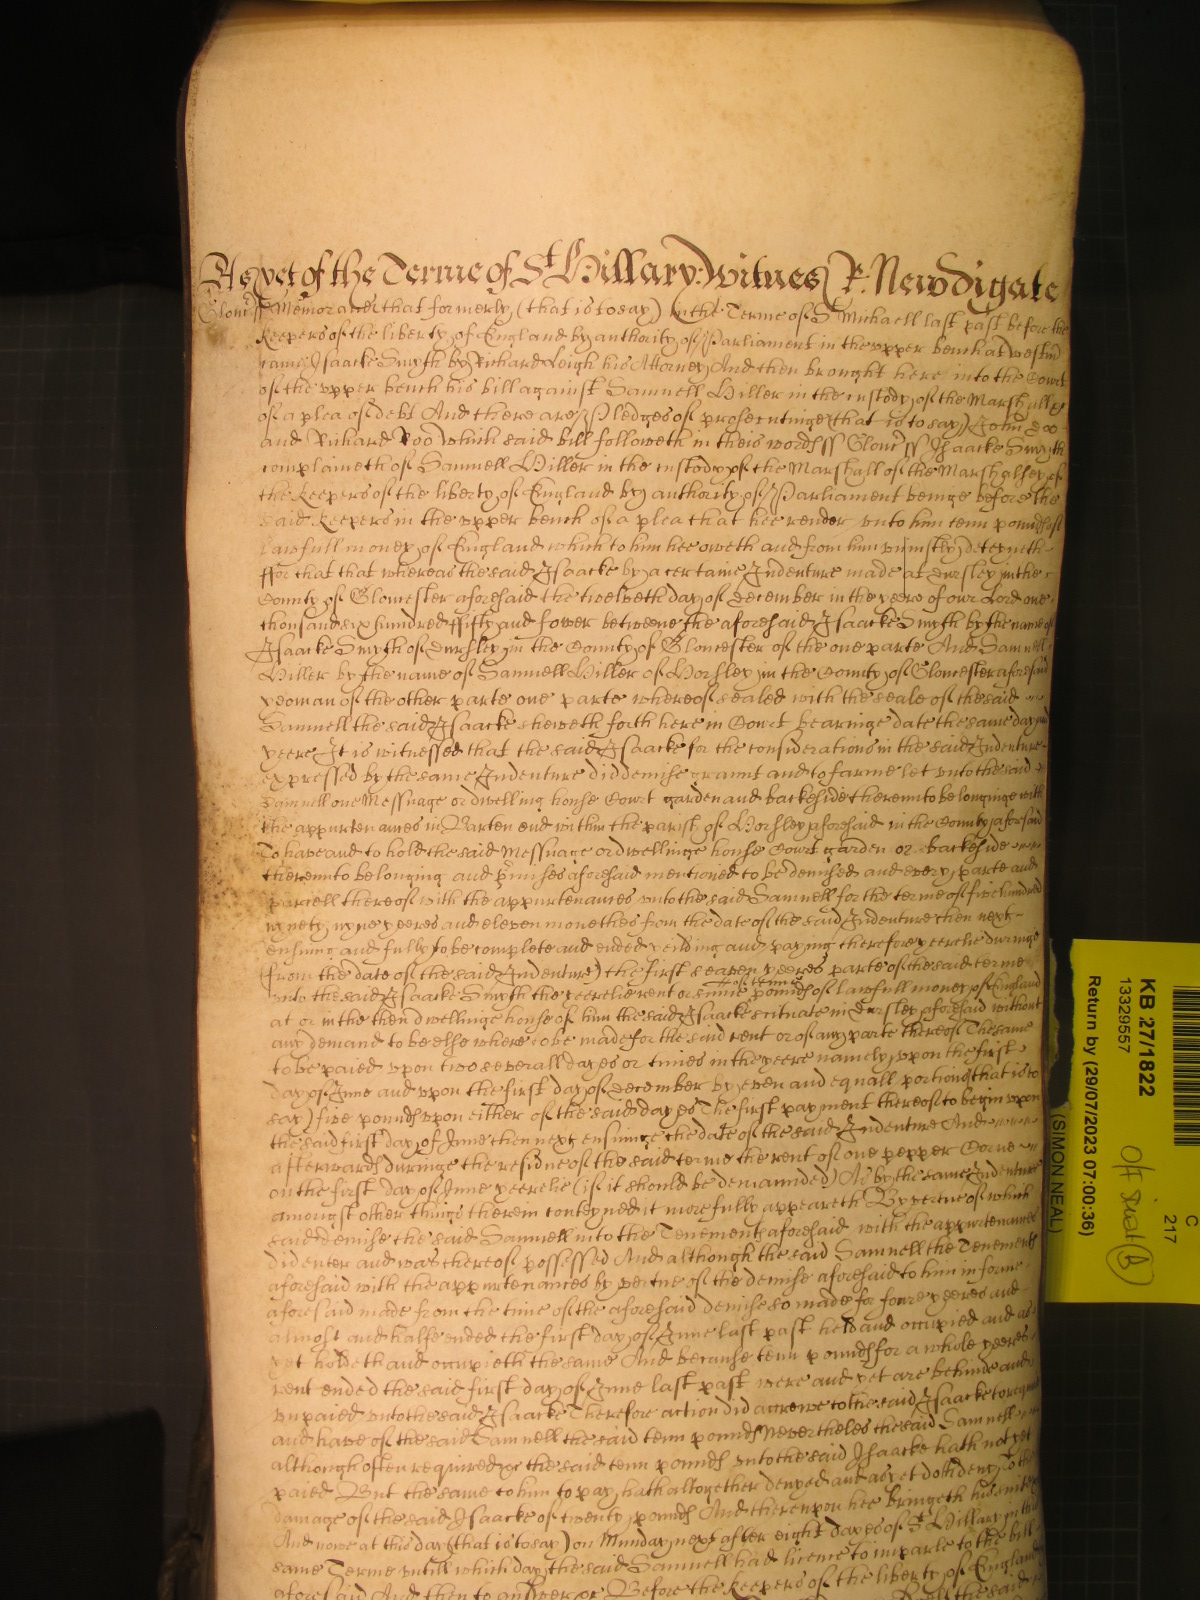 As yet of the Terme of St Hillary. Witnes R. Newdigate
Glouc ss Memorand that formerly (that is to say) in the Terme of St Michaell last past before the
Keepers of the liberty of England by authority of Parliament in the vpper bench at Westm
came Isaacke Smyth by Richard Leigh his Attorney And then brought here into the Court
of the vpper bench his bill against Samuell Hiller in the custody of the Marshall &c
of a plea of debt And there are Pledges of prosecutinge (that is to say) John Doo
and Richard Roo which said bill followeth in theis words ss Glouc ss Isaacke Smyth
complaineth of Samuell Hiller in the custody of the Marshall of the Marshalsey of
the Keepers of the liberty of England by authority of Parliament beinge before the
said Keepers in the vpper bench of a plea that hee render vnto him tenn pounds of
lawfull money of England which to him hee oweth and from him vniustly deteyneth
ffor that that whereas the said Isaacke by a certaine Indenture made at Dursley in the
County of Gloucester aforesaid the twelveth day of December in the yeere of our Lord one
thousand six hundred fifty and fower betweene the aforesaid Isaacke Smyth by the name of
Isaacke Smyth of Dursley in the County of Gloucester of the one parte And Samuell
Hiller by the name of Samuell Hiller of Horsley in the County of Gloucester aforesaid
yeoman of the other parte one parte whereof sealed with the seale of the said
Samuell the said Isaacke sheweth forth here in Court bearinge date the same day and
yeere It is witnessed that the said Isaacke for the considerations in the said Indenture
expressed by the same Indenture did demise graunt and to farme let vnto the said
Samuell one Messuage or dwelling house Court garden and backeside therevnto belonginge with
the appurtenances in Barten end within the parish of Horsley aforesaid in the County aforesaid
To have and to hold the said Messuage or dwellinge house Court garden or backeside
therevnto belonging and p'misses aforesaid mentioned to be demised and every parte and
parcell thereof with the appurtenances vnto the said Samuell for the terme of five hundred
nynety nyne yeeres and eleven monethes from the date of the said Indenture then next
ensuing and fully to be complete and ended yeilding and paying therefore yeerelie duringe
(from the date of the said Indenture) the first seaven yeeres parte of the said terme
vnto the said Isaacke Smyth the yeerelie rent or summe of tenn pounds of lawfull money of England
at or in the then dwellinge house of him the said Isaacke scituate in Dursley aforesaid without
any demand to be else where to be made for the said rent or of any parte thereof The same
to be paied vpon two severall dayes or times in the yeere namely vpon the first
day of June and vpon the first day of December by even and equall portions (that is to
say) five pounds vpon either of the said dayes The first payment thereof to begin vpon
the said first day of June then next ensuinge the date of the said Indenture And
afterwards duringe the residue of the said terme the rent of one pepper Corne
on the first day of June yeerelie (if it should be demaunded) As by the same Indenture
amongst other things therein conteyned it more fully appeareth By vertue of which
said demise the said Samuell into the Tenements aforesaid with the appurtenances
did enter and was thereof possessed And although the said Samuell the Tenements
aforesaid with the appurtenances by vertue of the demise aforesaid to him in forme
aforesaid made from the time of the aforesaid demise so made for foure yeeres and
almost and halfe ended the first day of June last past held and occupied and as
yet holdeth and occupieth the same And because tenn pounds for a whole yeeres
rent ended the said first day of June last past were and yet are behinde and
vnpaied vnto the said Isaacke Therefore action did accrewe to the said Isaacke to require
and have of the said Samuell the said tenn pounds Nevertheles the said Samuell
although often required &c the said tenn pounds vnto the said Isaacke hath not yet
paied But the same to him to pay hath altogether denyed and as yet doth deny to the
damage of the said Isaacke of twenty pounds And therevpon hee bringeth his suite
And nowe at this day (that is to say) on Munday next after eight dayes of St Hillary in this
same Terme vntill which day the said Samuell had licence to imparle to the bill
aforesaid And then to answer &c Before the Keepers of the liberty of England
KB 27/1822
13329557
Return by (29/07/2023 07:00:36)
(SIMON NEAL)
C
217